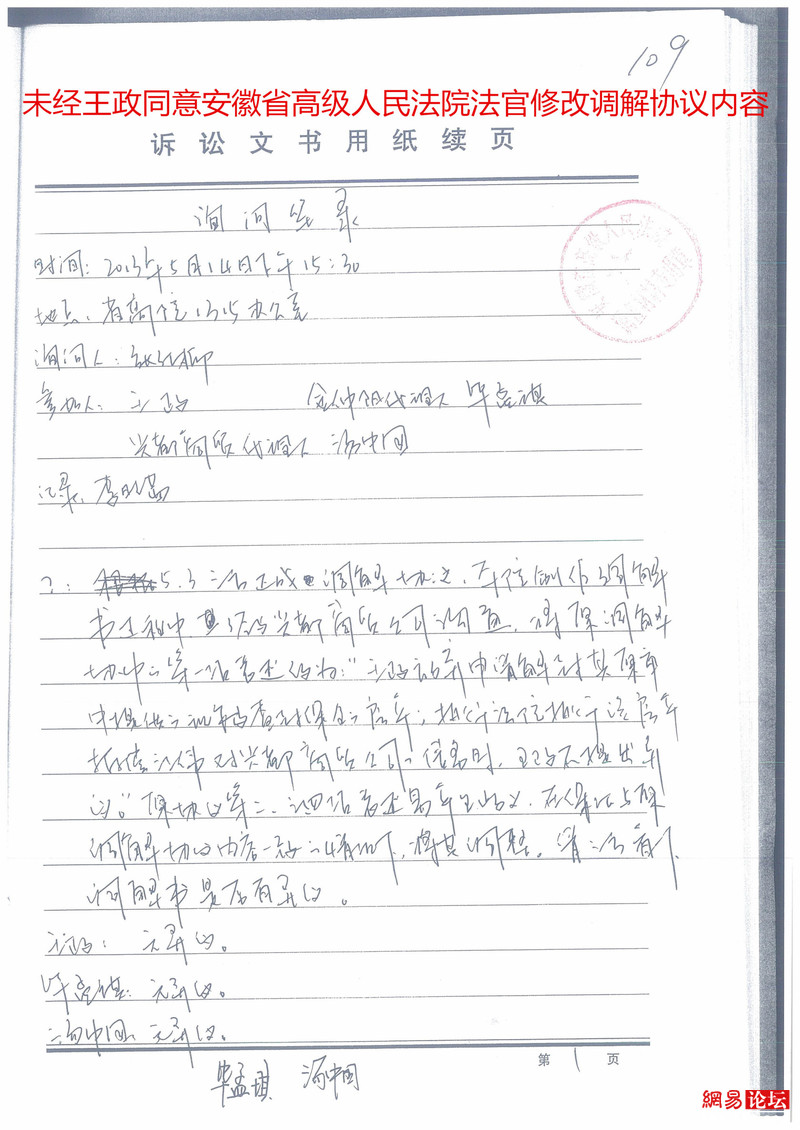 109
未经王政同意安徽省高级人民法院法官修改调解协议内容
诉讼文书用纸续页
询问笔录
时间：2013年5月14日下午15:30
地点：省高院1315办公室
询问人：
参加人：王政 代理人 毕孟琪
兴都商贸代理人 汤中国
记录：李
？：5.3 三方达成调解协议，本院制作调解
书过程中，兴都商贸公司，将原调解
协议第一项表述修改为：“王政申请解封其原审
中提供的查封保全的房产；执行法院执行该房产
对兴都商贸公司债务时，王政不提出异
议”。原协议第二、四项表述易产生歧义，在保证与原
调解协议内容一致的情况下，将其调整。请三方看下
调解书是否有异议。
王政：无异议。
毕孟琪：无异议。
汤中国：无异议。
第 1 页
毕孟琪 汤中国
網易论坛